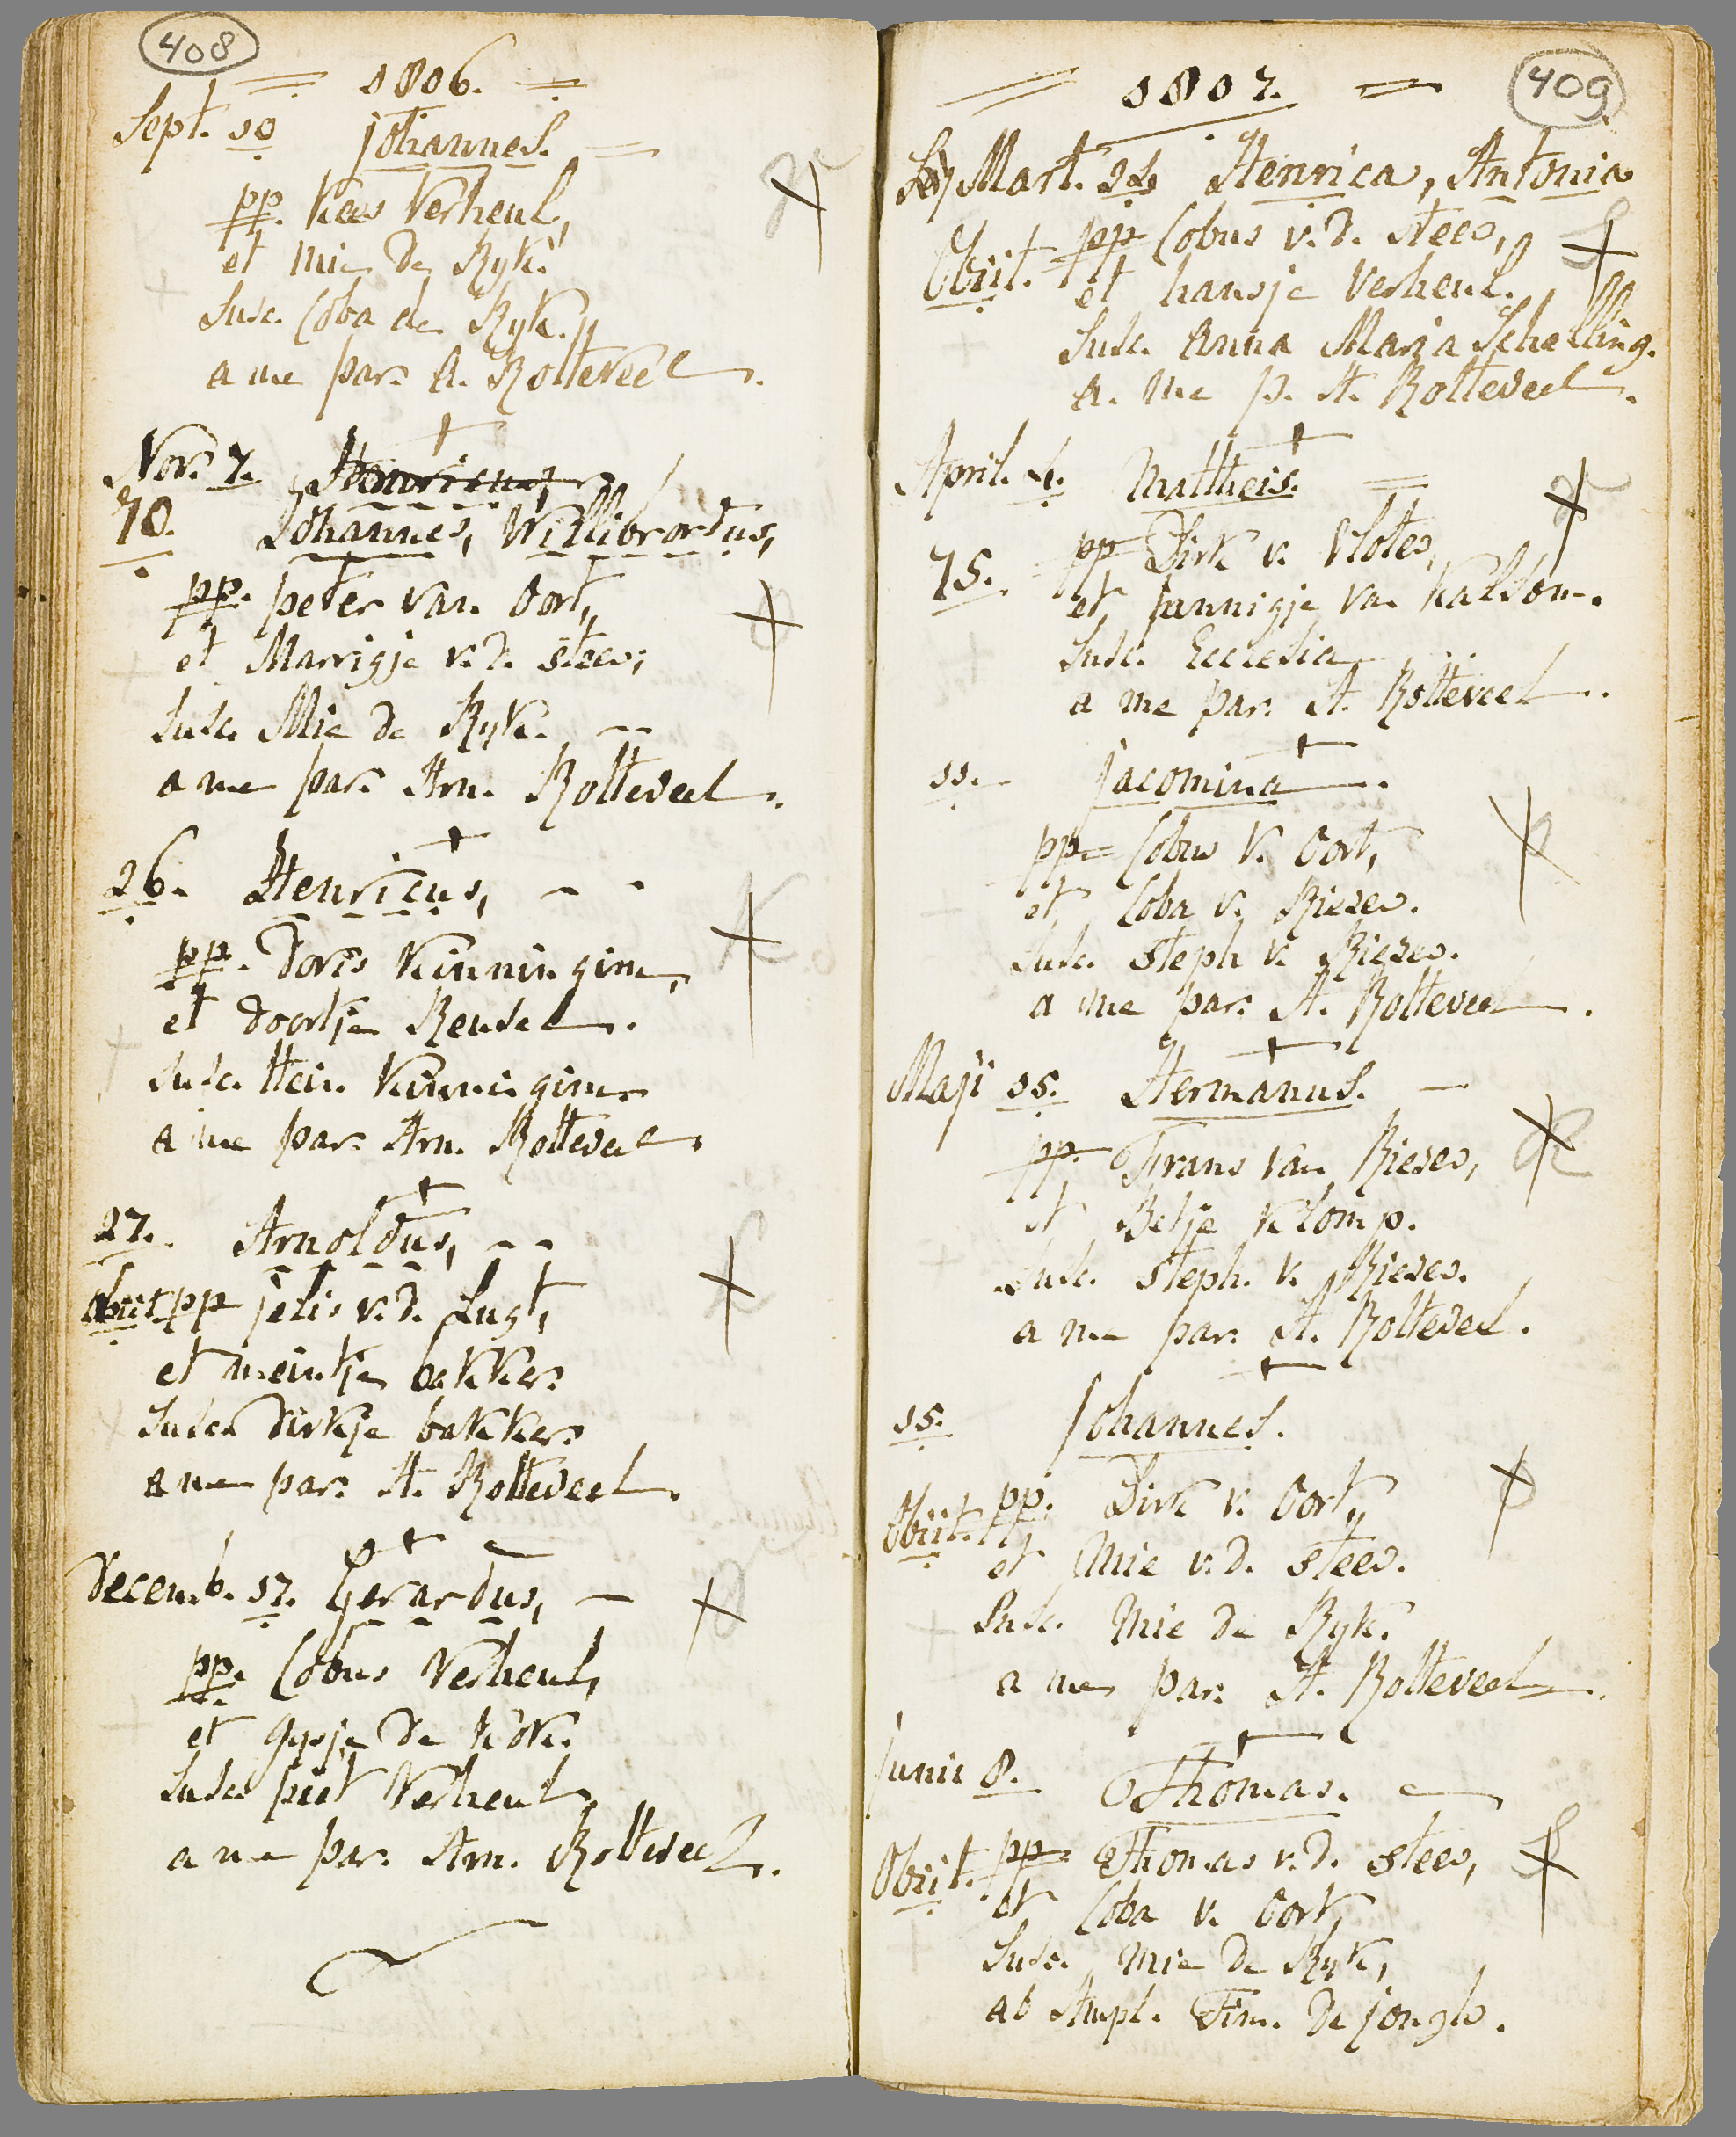 408
= 1806. =
Sept. 10 Johannes. =
pp. Kees Verheul,
et Mie de Ryk.
Susc. Coba de Ryk.
a me par. A. Rotteveel.
Nov. 7. Henricus,
10. Johannes, Willibrordus,
pp. peter van Oort,
et Marrigje v. d. steen,
Susc. Mie de Ryk.
a me par. Arn. Rotteveel.
26. Henricus,
pp. Doris Kinningim,
et doortje Reusel.
Susc. Hein Kinnigim.
a me par. Arn. Rotteveel.
27. Arnoldus,
obiit. pp jelis v. d. Lugt,
et meintje bakker.
Susc. Dirkje bakker.
a me par. A. Rotteveel.
Decemb. 17. Gerardus,
pp. Cobus Verheul,
et gysje de kok.
Susc. piet Verheul,
a me par. Arn. Rotteveel.
409
= 1807. =
Mart. 24 Henrica, Antonia
Obiit. pp Cobus v. d. steen,
et hansje Verheul.
Susc. Anna Maria Schelling.
a. me p. A. Rotteveel.
April. 4. Mattheis.
pp Dirk v. Vloten,
15. et jannigje van Kaldom.
Susc. Ecclesia
a me par. A. Rotteveel.
11. Jacomina.
pp Cobus v. Oort,
et Coba v. Riesen.
Susc. steph v. Riesen.
a me par. A. Rotteveel.
Maji 15. Hermanus.
pp. Frans van Riesen,
et Betje Klomp.
Susc. steph. v. Riesen.
a me par. A. Rotteveel.
15. Johannes.
Obiit. pp. Dirk v. Oort,
et Mie v. d. steen.
Susc. Mie de Ryk.
a me par. A. Rotteveel.
Junii 8. Thomas.
Obiit. pp. Thomas v. d. steen,
et Coba v. Oort,
Susc. Mie de Ryk,
ab Ampl. Fim. De jongh.